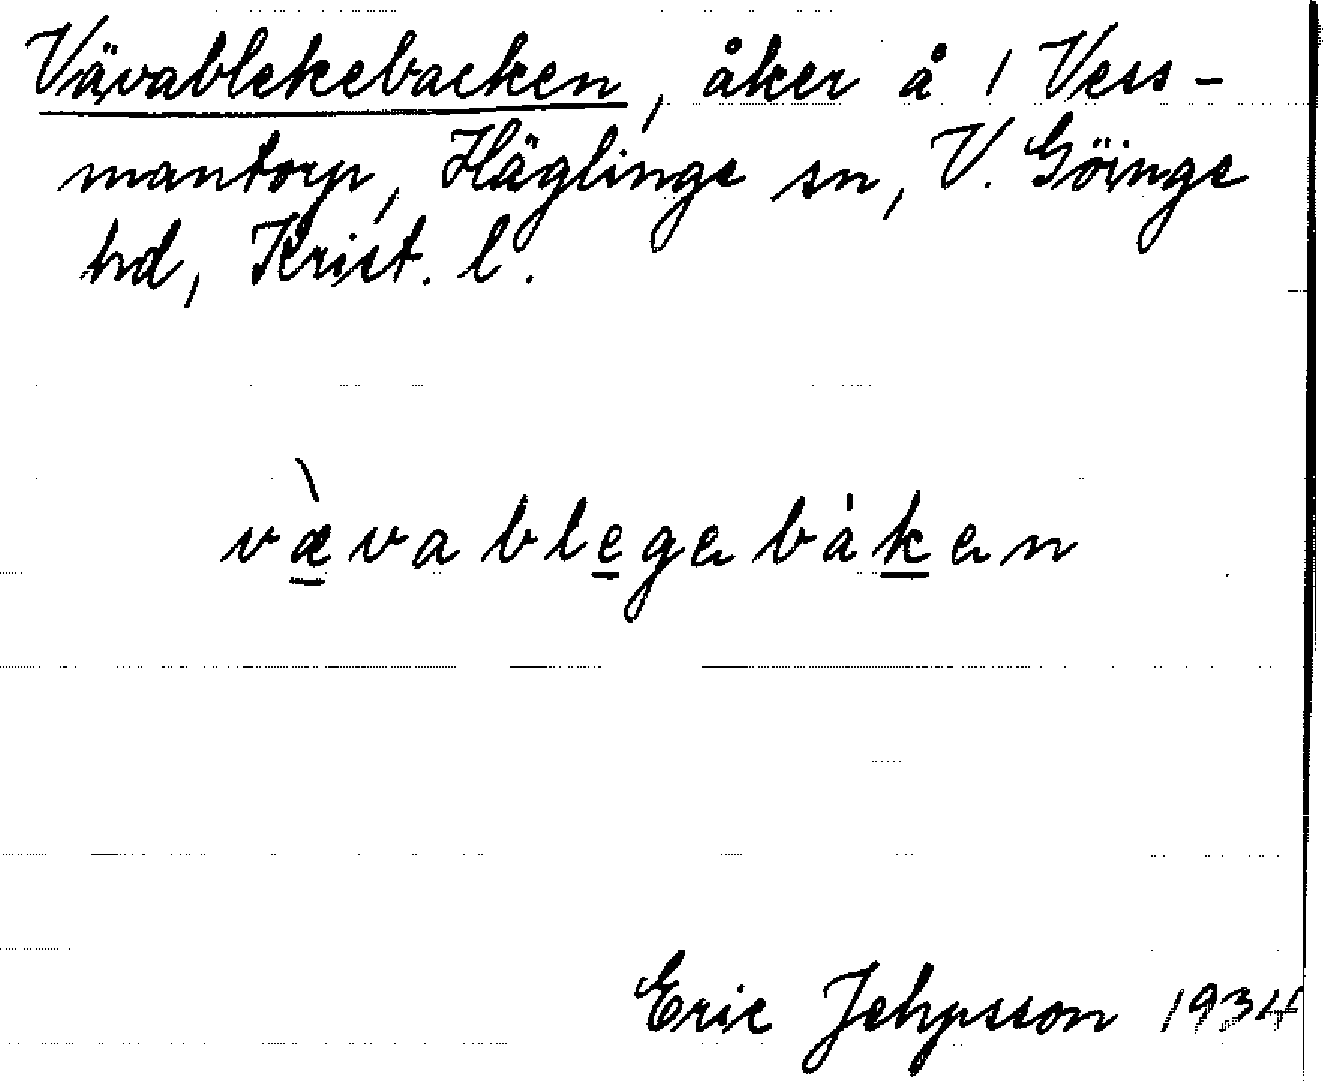 Vävablekebacken, åker å 1 Vess-
mantorp, Häglinge sn, V. Göinge
hd, Krist. l.
vævablegabakan
Eric Jehpsson 1934